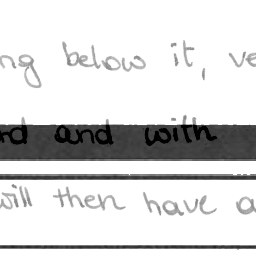 ng below it, ve
rd and with
will then have a